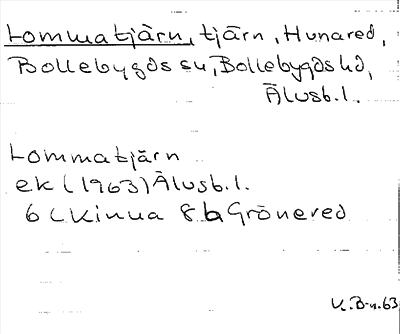 Lommatjärn, tjärn, Hunared,
Bollebygds sn, Bollebygds hd,
Älvsb. l.
Lommatjärn
ek (1963) Älvsb. l.
6 C Kinna 8 b Grönered
K. B-n. 63